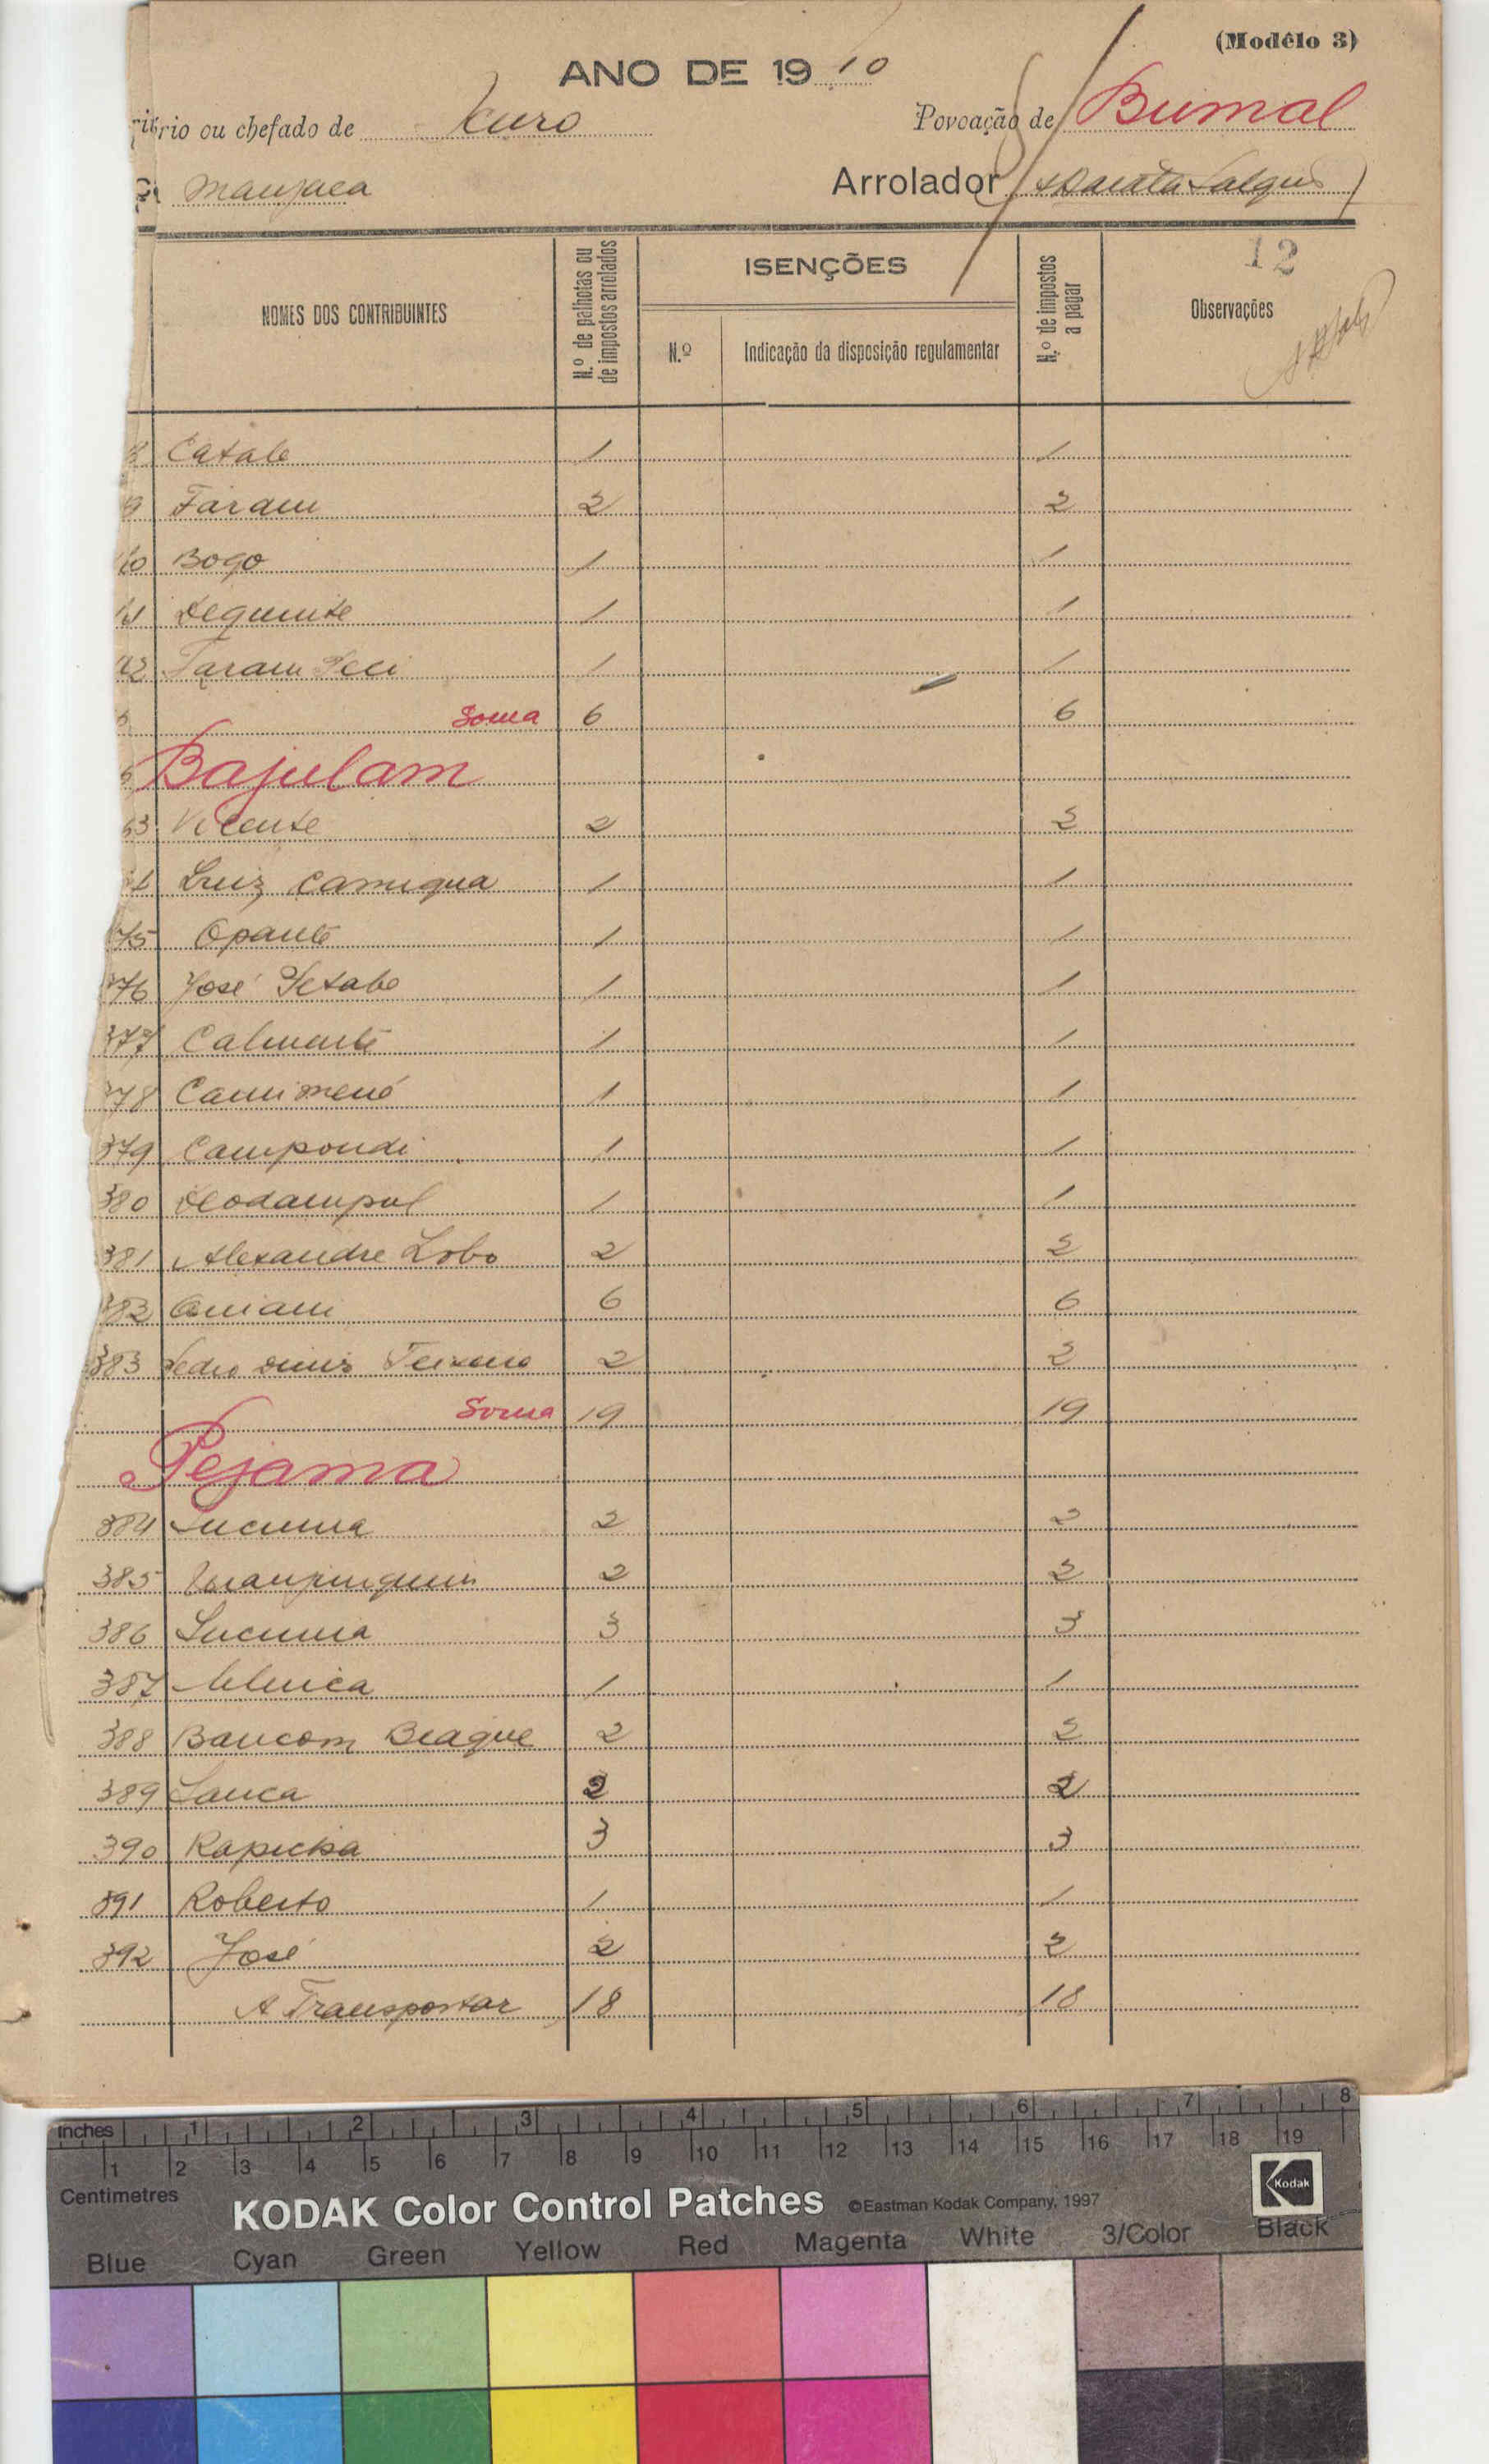 (Modêlo 3)
ANO DE 19 10
rio ou chefado de Curo Povoação de Bumal
Manjaca Arrolador
NOMES DOS CONTRIBUINTES
N.º de palhotas ou de impostos arrolados
ISENÇÕES
N.º
Indicação da disposição regulamentar
N.º de impostos a pagar
12
Observações
Catale 1 1
Faram 2 2
Bogo 1 1
1 1
Faram 1 1
Soma 6 6
Bajulam
Vicente 2 2
Luiz Camiqua 1 1
75 Opante 1 1
376 José 1 1
377 Calmante 1 1
378 1 1
379 Campondi 1 1
380 1 1
381 Alexandre Lobo 2 2
382 6 6
383 Pedro Diniz Teixeira 2 2
Soma 19 19
Pejama
384 2 2
385 2 2
386 3 3
387 1 1
388 Baucom Biague 2 2
389 Sanca 2 2
390 3 3
391 Roberto 1 1
392 José 2 2
A Transportar 18 18
inches 1 2 3 4 5 6 7 8
1 2 3 4 5 6 7 8 9 10 11 12 13 14 15 16 17 18 19
Centimetres
KODAK Color Control Patches ©Eastman Kodak Company, 1997 Kodak
Blue Cyan Green Yellow Red Magenta White 3/Color Black